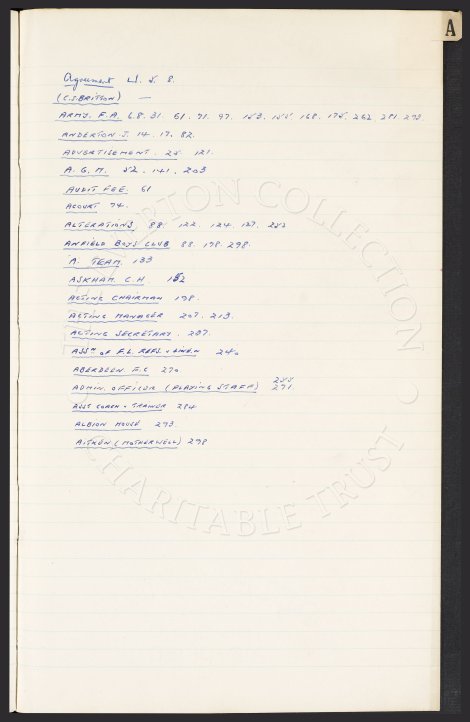 A
Agreement 4. 5. 8.
(C.S. BRITTON) —
ARMY. F.A. 6.8. 31. 61. 71. 97. 153. 155. 168. 175. 262. 281. 293.
ANDERTON J. 14. 17. 82.
ADVERTISEMENT. 25. 121.
A. G. M. 52. 141. 203
AUDIT FEE. 61
ACOURT 74.
ALTERATIONS 88. 122. 124. 127. 252
ANFIELD BOYS CLUB 88. 178. 298.
A. TEAM. 133
ASKHAM. C.H. 152
ACTING CHAIRMAN 198.
ACTING MANAGER 207. 213.
ACTING SECRETARY. 237.
ASSN OF F.L. REFS. & LINEN 240
ABERDEEN. F.C 270
ADMIN. OFFICER (PLAYING STAFF) 255 271
ASST COACH - TRAINER 284
ALBION HOUSE 293.
AITKEN (MOTHERWELL) 298
THE LITTLETON COLLECTION
CHARITABLE TRUST